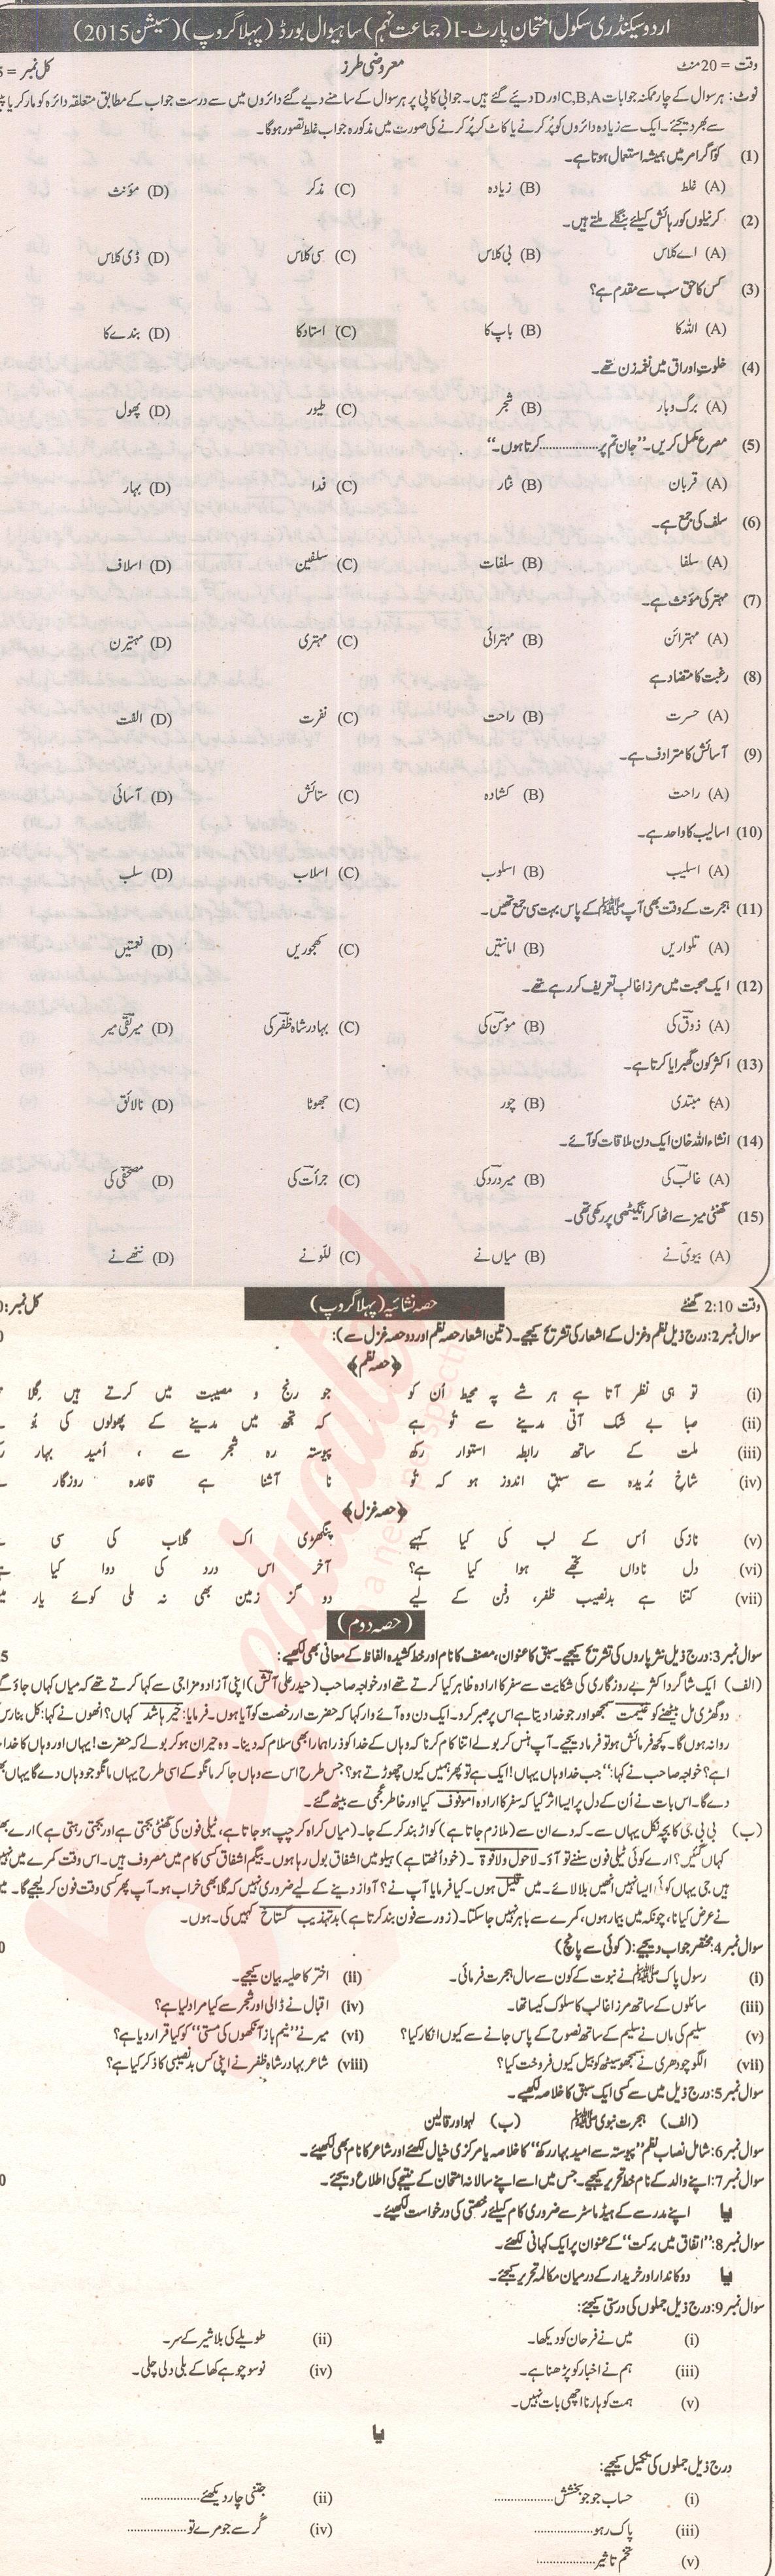 اردو سیکنڈری سکول امتحان پارٹ-I (جماعت نہم) ساہیوال بورڈ (پہلا گروپ) (سیشن 2015)
وقت = 20 منٹ معروضی طرز کل نمبر =
نوٹ: ہر سوال کے چار ممکنہ جوابات C,B,A اور D دیئے گئے ہیں۔ جوابی کاپی پر ہر سوال کے سامنے دیے گئے دائروں میں سے درست جواب کے مطابق متعلقہ دائرہ کو مارکر یا
سے بھر دیجئے۔ ایک سے زیادہ دائروں کو پُر کرنے یا کاٹ کر پُر کرنے کی صورت میں مذکورہ جواب غلط تصور ہوگا۔
(1) کوّا گرامر میں ہمیشہ استعمال ہوتا ہے۔
(A) غلط (B) زیادہ (C) مذکر (D) مؤنث
(2) کرنیلوں کو رہائش کیلئے بنگلے ملتے ہیں۔
(A) اے کلاس (B) بی کلاس (C) سی کلاس (D) ڈی کلاس
(3) کس کا حق سب سے مقدم ہے؟
(A) اللہ کا (B) باپ کا (C) استاد کا (D) بندے کا
(4) خلوتِ اوراق میں نغمہ زن تھے۔
(A) برگ و بار (B) شجر (C) طیور (D) پھول
(5) مصرع مکمل کریں۔ "جان تم پر ................ کرتا ہوں۔"
(A) قربان (B) نثار (C) فدا (D) بہار
(6) سلف کی جمع ہے۔
(A) سلفا (B) سلفات (C) سلفین (D) اسلاف
(7) مہتر کی مؤنث ہے۔
(A) مہترائن (B) مہترانی (C) مہتری (D) مہتیرن
(8) رغبت کا متضاد ہے
(A) حسرت (B) راحت (C) نفرت (D) الفت
(9) آسائش کا مترادف ہے۔
(A) راحت (B) کشادہ (C) ستائش (D) آسانی
(10) اسالیب کا واحد ہے۔
(A) اسلیب (B) اسلوب (C) اسلاب (D) سلب
(11) ہجرت کے وقت بھی آپ ﷺ کے پاس بہت سی جمع تھیں۔
(A) تلواریں (B) امانتیں (C) کھجوریں (D) نعمتیں
(12) ایک صحبت میں مرزا غالب تعریف کر رہے تھے۔
(A) ذوق کی (B) مومن کی (C) بہادر شاہ ظفر کی (D) میر تقی میر
(13) اکثر کون گھبرایا کرتا ہے۔
(A) مبتدی (B) چور (C) جھوٹا (D) نالائق
(14) انشاء اللہ خان ایک دن ملاقات کو آئے۔
(A) غالب کی (B) میر درد کی (C) جرأت کی (D) مصحفی کی
(15) گھنٹی میز سے اٹھا کر انگیٹھی پر رکھی تھی۔
(A) بیوی نے (B) میاں نے (C) للّو نے (D) ننھے نے
وقت 2:10 گھنٹے حصہ انشائیہ (پہلا گروپ) کل نمبر:
سوال نمبر 2: درج ذیل نظم و غزل کے اشعار کی تشریح کیجیے۔ (تین اشعار حصہ نظم اور دو حصہ غزل سے):
﴿حصہ نظم﴾
(i) تو ہی نظر آتا ہے ہر شے پہ محیط اُن کو جو رنج و مصیبت میں کرتے ہیں گِلا
(ii) صبا بے شک آتی مدینے سے تُو ہے کہ تجھ میں مدینے کے پھولوں کی بُو
(iii) ملت کے ساتھ رابطہ استوار رکھ پیوستہ رہ شجر سے، اُمید بہار
(iv) شاخِ بُریدہ سے سبق اندوز ہو کہ تُو نا آشنا ہے قاعدہ روزگار
﴿حصہ غزل﴾
(v) نازکی اُس کے لب کی کیا کہیے پنکھڑی اک گلاب کی سی
(vi) دل ناداں تجھے ہوا کیا ہے؟ آخر اس درد کی دوا کیا
(vii) کتنا ہے بدنصیب ظفر، دفن کے لیے دو گز زمین بھی نہ ملی کوئے یار
(حصہ دوم)
سوال نمبر 3: درج ذیل نثر پاروں کی تشریح کیجیے۔ سبق کا عنوان، مصنف کا نام اور خط کشیدہ الفاظ کے معانی بھی لکھیے:
(الف) ایک شاگرد اکثر بے روزگاری کی شکایت سے سفر کا ارادہ ظاہر کیا کرتے تھے اور خواجہ صاحب (حیدر علی آتش) اپنی آزاد مزاجی سے کہا کرتے تھے کہ میاں کہاں جاؤ گے
دو گھڑی مل بیٹھنے کو غنیمت سمجھو اور جو خدا دیتا ہے اس پر صبر کرو۔ ایک دن وہ آئے اور کہا کہ حضرت اب رخصت کو آیا ہوں۔ فرمایا: خیر باشد کہاں؟ انھوں نے کہا: کل بنارس
روانہ ہوں گا۔ کچھ فرمائش ہو تو فرما دیجیے۔ آپ ہنس کر بولے اتنا کام کرنا کہ وہاں کے خدا کو ذرا ہمارا بھی سلام کہہ دینا۔ وہ حیران ہو کر بولے کہ حضرت! یہاں اور وہاں کا خدا
ہے؟ خواجہ صاحب نے کہا: "جب خدا وہاں یہاں! ایک ہے تو پھر ہمیں کیوں چھوڑتے ہو؟ جس طرح اس سے وہاں جا کر مانگو گے اسی طرح یہاں مانگو جو وہاں دے گا یہاں
دے گا۔ اس بات نے اُن کے دل پر ایسا اثر کیا کہ سفر کا ارادہ موقوف کیا اور خاطر جمعی سے بیٹھ گئے۔
(ب) بی بی جی کا بچہ نکل یہاں سے۔ کہہ دے ان سے (ملازم جاتا ہے) کواڑ بند کر کے جا۔ (میاں کراہ کر چپ ہو جاتا ہے، ٹیلی فون کی گھنٹی بجتی ہے اور بجتی رہتی ہے) ارے
کہاں گئیں؟ ارے کوئی ٹیلی فون سننے تو آؤ۔ لاحول ولا قوۃ۔ (خود اُٹھتا ہے) ہیلو میں اشفاق بول رہا ہوں۔ بیگم اشفاق کسی کام میں مصروف ہیں۔ اس وقت کمرے میں نہیں
ہیں جی یہاں کوئی ایسا نہیں انھیں بلا لائے۔ میں علیل ہوں۔ کیا فرمایا آپ نے؟ آواز دینے کے لیے ضروری نہیں کہ گلا بھی خراب ہو۔ آپ پھر کسی وقت فون کر لیجیے گا۔
نے عرض کیا نا، چونکہ میں بیمار ہوں، کمرے سے باہر نہیں جا سکتا۔ (زور سے فون بند کرتا ہے) بدتہذیب گستاخ کہیں کی۔ ہوں۔
سوال نمبر 4: مختصر جواب دیجیے: (کوئی سے پانچ)
(i) رسول پاک ﷺ نے نبوت کے کون سے سال ہجرت فرمائی۔ (ii) اختر کا حلیہ بیان کیجیے۔
(iii) سائلوں کے ساتھ مرزا غالب کا سلوک کیسا تھا۔ (iv) اقبال نے ڈالی اور شجر سے کیا مراد لیا ہے؟
(v) سلیم کی ماں نے سلیم کے ساتھ نصوح کے پاس جانے سے کیوں انکار کیا؟ (vi) میر نے "نیم باز آنکھوں کی مستی" کو کیا قرار دیا ہے؟
(vii) الگو چودھری نے سمجھو سیٹھ کو بیل کیوں فروخت کیا؟ (viii) شاعر بہادر شاہ ظفر نے اپنی کس بدنصیبی کا ذکر کیا ہے؟
سوال نمبر 5: درج ذیل میں سے کسی ایک سبق کا خلاصہ لکھیے۔
(الف) ہجرت نبوی ﷺ (ب) لہو اور قالین
سوال نمبر 6: شامل نصاب نظم "پیوستہ سے امید بہار رکھ" کا خلاصہ یا مرکزی خیال لکھئے اور شاعر کا نام بھی لکھیئے۔
سوال نمبر 7: اپنے والد کے نام خط تحریر کیجیے۔ جس میں اسے اپنے سالانہ امتحان کے نتیجے کی اطلاع دیجئے۔
یا اپنے مدرسے کے ہیڈ ماسٹر سے ضروری کام کیلئے رخصتی کی درخواست لکھیئے۔
سوال نمبر 8: "اتفاق میں برکت" کے عنوان پر ایک کہانی لکھئے۔
یا دوکاندار اور خریدار کے درمیان مکالمہ تحریر کیجئے۔
سوال نمبر 9: درج ذیل جملوں کی درستی کیجئے:
(i) میں نے فرحان کو دیکھا۔ (ii) طویلے کی بلا شیر کے سر۔
(iii) ہم نے اخبار کو پڑھنا ہے۔ (iv) نو سو چوہے کھا کے بلی دلی چلی۔
(v) ہمت کو ہارنا اچھی بات نہیں۔
یا
درج ذیل جملوں کی تکمیل کیجیے:
(i) حساب جو جو بخشش ................ (ii) جتنی چادر دیکھئے ................
(iii) پاک رہو ................ (iv) گُر سے جو مرے تو ................
(v) تخم تاثیر ................